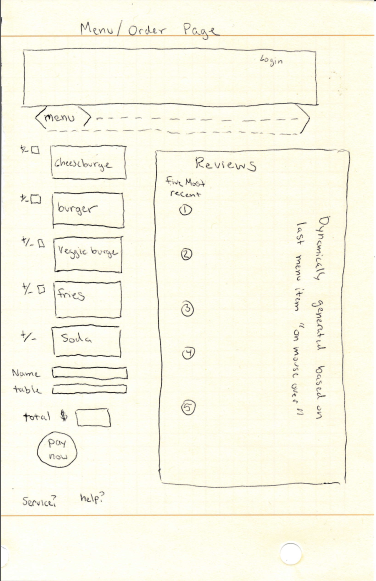 Menu/Order Page
Login
menu
+/-
cheeseburge
+/-
burger
+/-
veggie burge
+/-
fries
+/-
Soda
Name
table
total $
pay
now
Service?
help?
Reviews
Five Most
recent
1
2
3
4
5
Dynamically generated based on
last menu item "on mouse over"